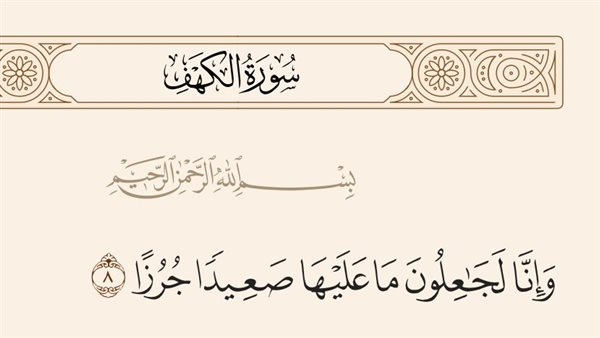 سُورَةُ الكَهۡفِ
بِسۡمِ ٱللَّهِ ٱلرَّحۡمَٰنِ ٱلرَّحِيمِ
وَإِنَّا لَجَٰعِلُونَ مَا عَلَيۡهَا صَعِيدٗا جُرُزًا ٨